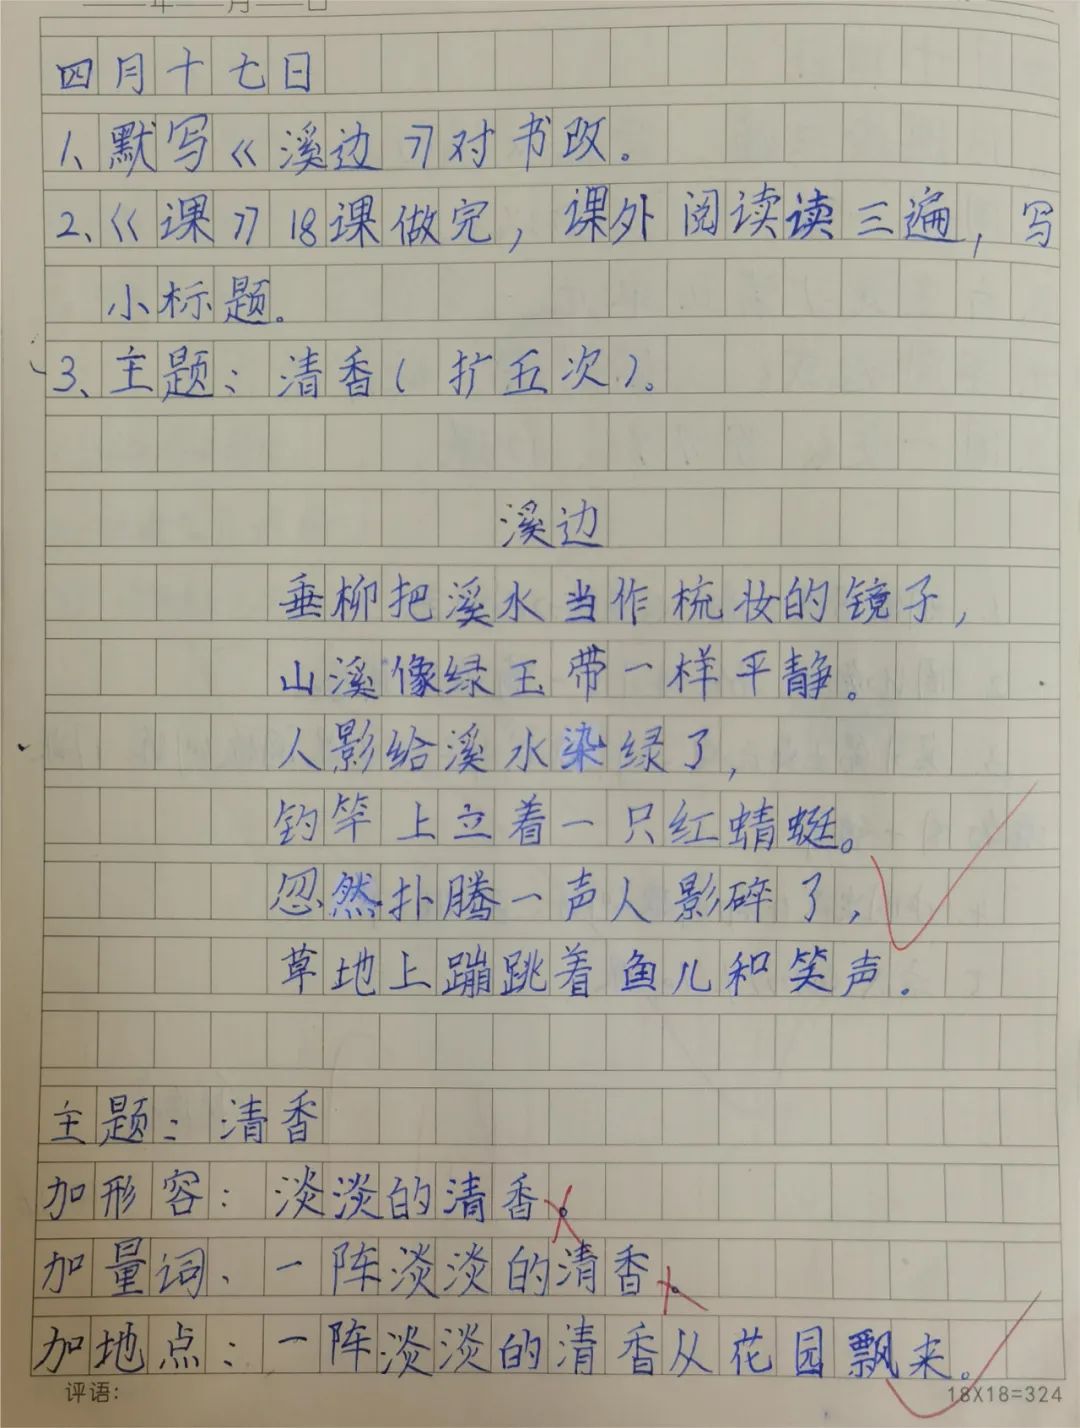 年 月 日
四月十七日
1、默写《溪边》对书改。
2、《课》18课做完,课外阅读读三遍,写
小标题。
3、主题:清香(扩五次)。
溪边
垂柳把溪水当作梳妆的镜子,
山溪像绿玉带一样平静。
人影给溪水染绿了,
钓竿上立着一只红蜻蜓。
忽然扑腾一声人影碎了,
草地上蹦跳着鱼儿和笑声.
主题:清香
加形容:淡淡的清香。
加量词、一阵淡淡的清香.
加地点:一阵淡淡的清香从花园飘来。
评语:
18X18=324